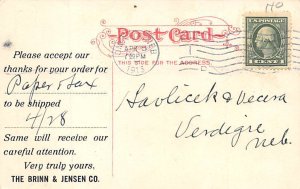 110
Post Card
THIS SIDE FOR THE ADDRESS
1913
U.S. POSTAGE
1 CENT 1
Please accept our
thanks for your order for
Paper & Sax
to be shipped
4/28
Same will receive our
careful attention.
Very truly yours,
THE BRINN & JENSEN CO.
Havlicek & Vecera
Verdigre
Neb.